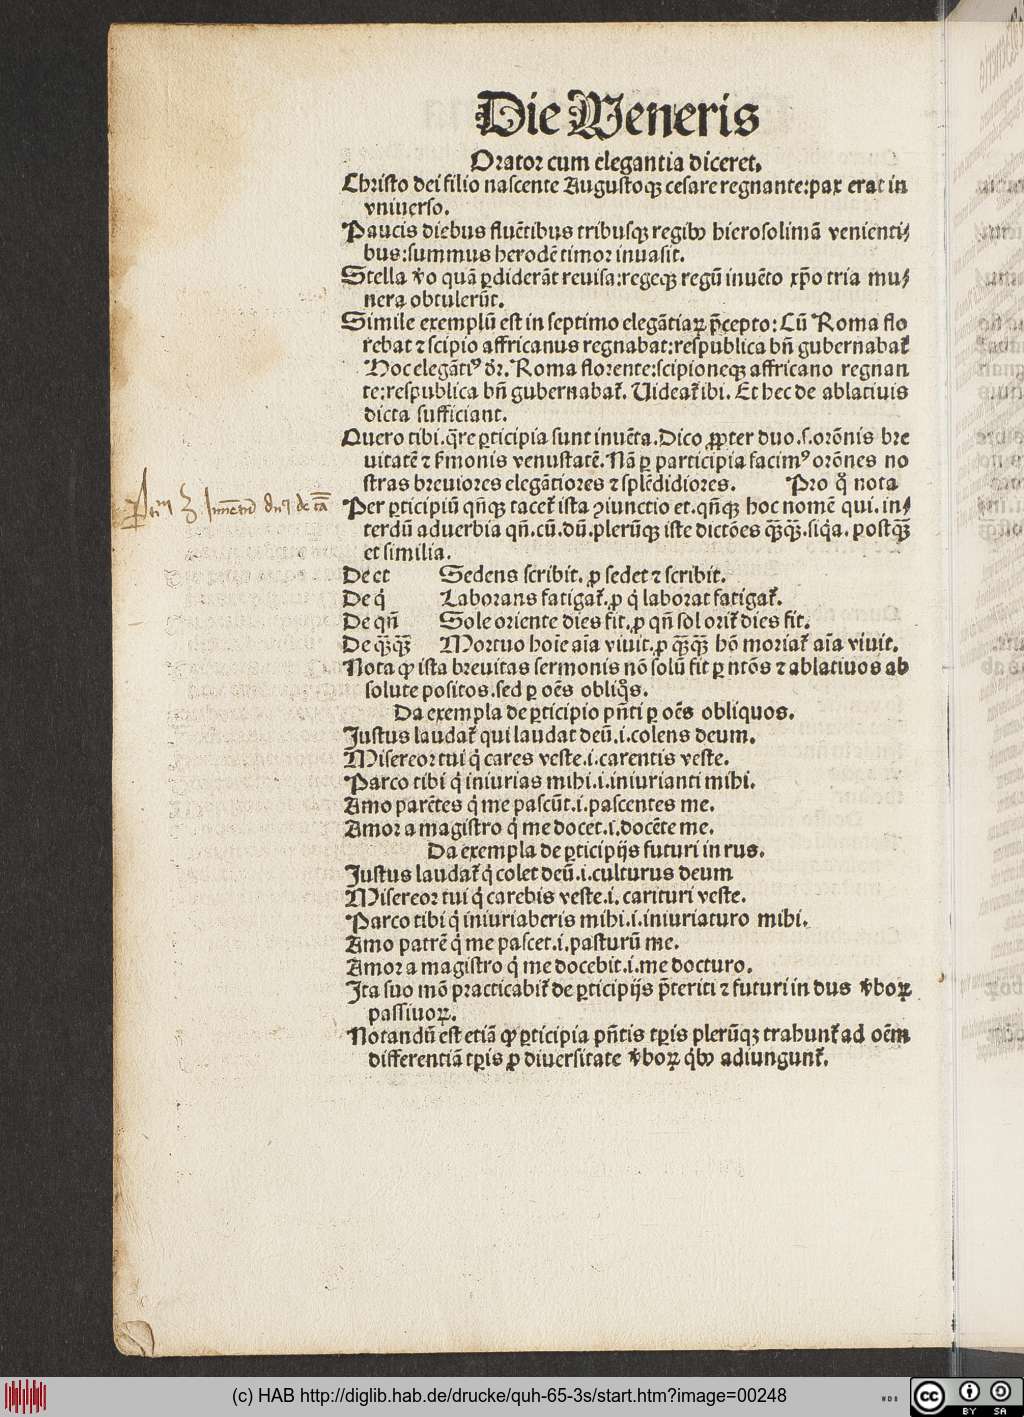 Die Veneris
Orator cum elegantia diceret.
Christo dei filio nascente Augustoqꝫ cesare regnante:pax erat in
vniuerso.
Paucis diebus fluẽtibus tribusqꝫ regibꝰ hierosolimã venienti⸗
bus:summus herodẽ timor inuasit.
Stella v̾o quã ꝑdiderãt reuisa:regeqꝫ regũ inuẽto xp̃o tria mu⸗
nera obtulerũt.
Simile exemplũ est in septimo elegãtiaꝝ p̃cepto:Cũ Roma flo
rebat ⁊ scipio affricanus regnabat:respublica bñ gubernabat̃
Hoc elegãtiꝰ dr̃. Roma florente:scipioneqꝫ affricano regnan
te:respublica bñ gubernabat̃. Uideat̃ ibi. Et hec de ablatiuis
dicta sufficiant.
Quero tibi.q̃re ꝑticipia sunt inuẽta.Dico ꝓpter duo.s.orõnis bre
uitatẽ ⁊ ẜmonis venustatẽ.Nã ꝑ participia facimꝰ orõnes no
stras breuiores elegãtiores ⁊ splẽdidiores. Pro qͦ nota
Per ꝑticipiũ qñqꝫ tacet̃ ista ꝯiunctio et.qñqꝫ hoc nomẽ qui.in⸗
terdũ aduerbia qñ.cũ.dũ.plerũqꝫ iste dictões qꝫ̃qꝫ̃.siq̃a.postqꝫ̃
et similia.
De et Sedens scribit.ꝓ sedet ⁊ scribit.
De q̇ Laborans fatigat̃.ꝓ q̇ laborat fatigat̃.
De qñ Sole oriente dies fit.ꝓ qñ sol orit̃ dies fit.
De qꝫ̃qꝫ̃ Mortuo hoĩe aĩa viuit.ꝓ qꝫ̃qꝫ̃ hõ moriat̃ aĩa viuit.
Nota ꝙ ista breuitas sermonis nõ solũ fit ꝑ ntõs ⁊ ablatiuos ab
solute positos.sed ꝑ oẽs obliqͦs.
Da exempla de ꝑticipio pñti ꝑ oẽs obliquos.
Justus laudat̃ qui laudat deũ.i.colens deum.
Misereor tui q̇ cares veste.i.carentis veste.
Parco tibi q̇ iniurias mihi.i.iniurianti mihi.
Amo parẽtes q̇ me pascũt.i.pascentes me.
Amor a magistro q̇ me docet.i.docẽte me.
Da exempla de ꝑticipijs futuri in rus.
Justus laudat̃ q̇ colet deũ.i.culturus deum
Misereor tui q̇ carebis veste.i.carituri veste.
Parco tibi q̇ iniuriaberis mihi.i.iniuriaturo mihi.
Amo patrẽ q̇ me pascet.i.pasturũ me.
Amor a magistro q̇ me docebit.i.me docturo.
Ita suo mõ practicabit̃ de ꝑticipijs p̃teriti ⁊ futuri in dus v̾boꝝ
passiuoꝝ.
Notandũ est etiã ꝙ ꝑticipia pñtis tꝑis plerũqꝫ trahunt̃ ad oẽm
differentiã tꝑis ꝓ diuersitate v̾boꝝ q̇bꝰ adiungunt̃.
(c) HAB http://diglib.hab.de/drucke/quh-65-3s/start.htm?image=00248
cc BY SA